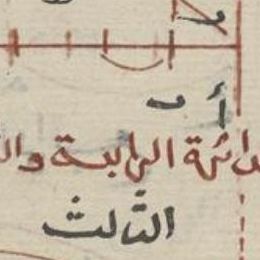 أ ب
دائرة الرابعة وال
الثالث